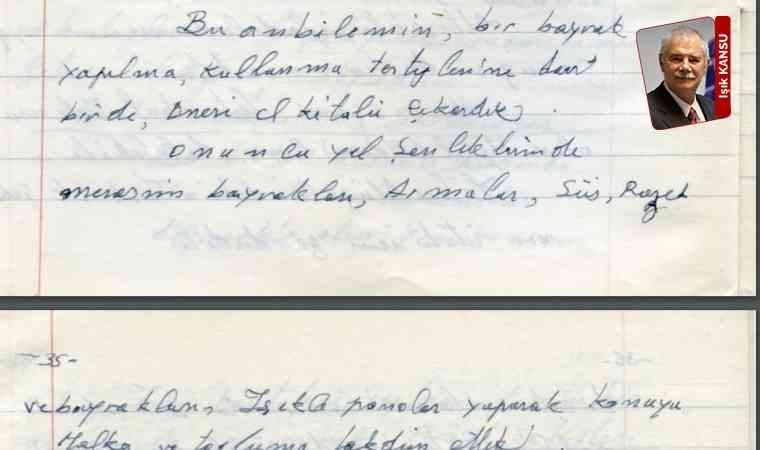 Bu anbilemin, bir bayrak
yapılma, kullanma
birde, Öneri el kitabı Çıkardık
Onuncu yıl Şenliklerinde
merasim bayrakları, Armalar, Süs, Rozet
-35-
ve bayrakları, Işıklı panolar yaparak konuyu
Halka ve topluma takdim ettik.
Işık KANSU